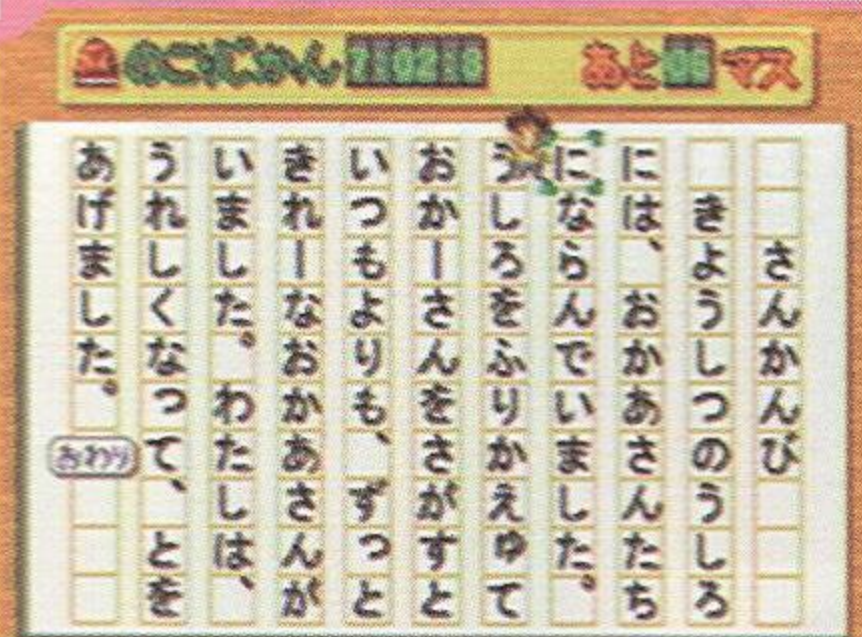 のこりじかん 7:02:0 あと マス
さんかんび
きようしつのうしろ
には、おかあさんたち
にならんでいました。
うしろをふりかえゆて
おかーさんをさがすと
いつもよりも、ずっと
きれーなおかあさんが
いました。わたしは、
うれしくなって、とを
あげました。
おわり